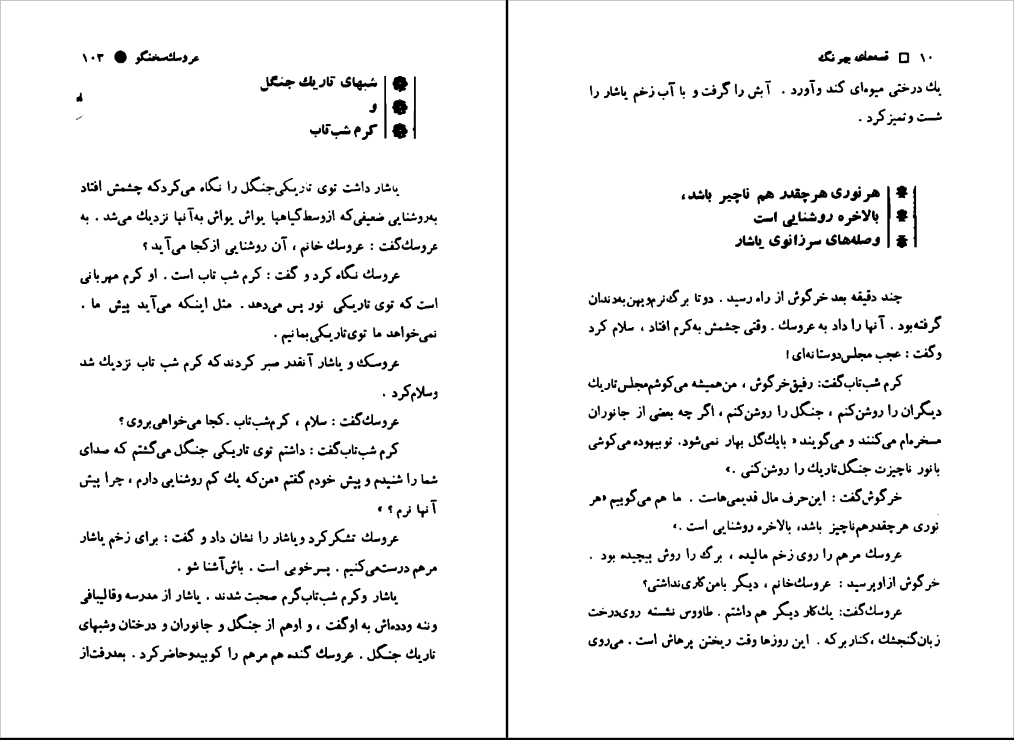 عروسك سخنگو ● ۱۰۳
شبهای تاریك جنگل
و
کرم شب‌تاب
یاشار داشت توی تاریکی جنگل را نگاه می‌کرد که چشمش افتاد
به روشنایی ضعیفی که از وسط گیاهها یواش یواش به آنها نزدیك می‌شد . به
عروسك گفت : عروسك خانم ، آن روشنایی از کجا می‌آید ؟
عروسك نگاه کرد و گفت : کرم شب تاب است . او کرم مهربانی
است که توی تاریکی نور پس می‌دهد . مثل اینکه می‌آید پیش ما .
نمی‌خواهد ما توی تاریکی بمانیم .
عروسک و یاشار آنقدر صبر کردند که کرم شب تاب نزدیك شد
وسلام کرد .
عروسك گفت : سلام ، کرم شب‌تاب . کجا می‌خواهی بروی ؟
کرم شب‌تاب گفت : داشتم توی تاریکی جنگل می‌گشتم که صدای
شما را شنیدم و پیش خودم گفتم «من که یك کم روشنایی دارم ، چرا پیش
آنها نرم ؟ »
عروسك تشکر کرد و یاشار را نشان داد و گفت : برای زخم یاشار
مرهم درست می‌کنیم . پسر خوبی است . باش آشنا شو .
یاشار و کرم شب‌تاب گرم صحبت شدند . یاشار از مدرسه وقالیبافی
وننه وددهاش به او گفت ، و او هم از جنگل و جانوران و درختان وشبهای
تاریك جنگل . عروسك گنده هم مرهم را کوبید و حاضر کرد . بعد رفت از
۱۰ □ قصه‌های بهرنگ
یك درختی میوه‌ای کند و آورد . آبش را گرفت و با آب زخم یاشار را
شست و تمیز کرد .
هر نوری هر چقدر هم ناچیز باشد،
بالاخره روشنایی است
وصله‌های سر زانوی یاشار
چند دقیقه بعد خرگوش از راه رسید . دو تا برگ نرم و پهن به دندان
گرفته بود . آنها را داد به عروسك . وقتی چشمش به کرم افتاد ، سلام کرد
وگفت : عجب مجلس دوستانه‌ای !
کرم شب‌تاب گفت: رفیق خرگوش ، من همیشه می‌کوشم مجلس تاریك
دیگران را روشن کنم ، جنگل را روشن کنم ، اگر چه بعضی از جانوران
مسخره‌ام می‌کنند و می‌گویند « با یك گل بهار نمی‌شود، تو بیهوده می‌کوشی
با نور ناچیزت جنگل تاریك را روشن کنی .»
خرگوش گفت : این حرف مال قدیمی‌هاست . ما هم می‌گوییم «هر
نوری هر چقدر هم ناچیز باشد، بالاخره روشنایی است .»
عروسك مرهم را روی زخم مالیده ، برگ را روش پیچیده بود .
خرگوش از او پرسید : عروسك خانم ، دیگر با من کاری نداشتی؟
عروسك گفت: یك کار دیگر هم داشتم . طاووس نشسته روی درخت
زبان گنجشك ، کنار برکه . این روزها وقت ریختن پرهاش است . می‌روی